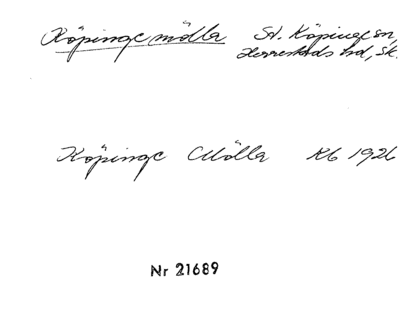 Köpinge mölla St. Köpinge sn,
Herrestads hd, Sk.
Köpinge Mölla Rb 1926
Nr 21689